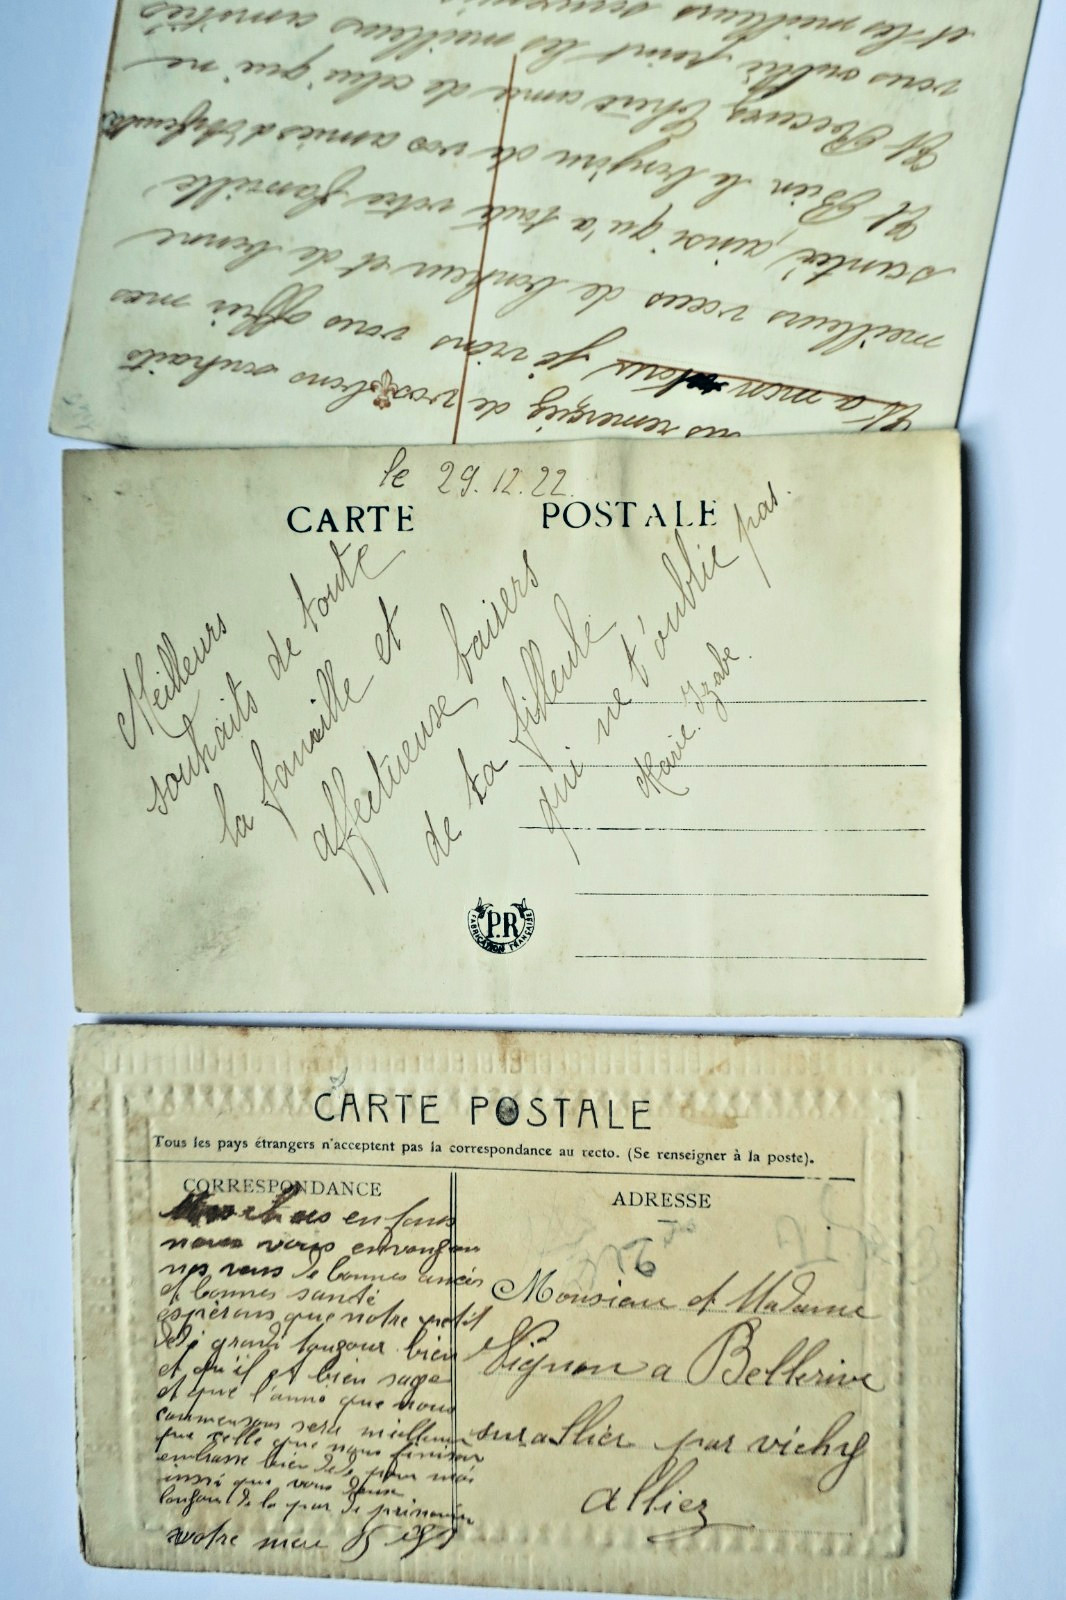 vous remerciez de vos bons souhaits
Et a mon tour je viens vous offrir mes
meilleurs vœux de bonheur et de bonne
santé, ainsi qu'a toute votre famille
Et Bien le bonjour de vos amies
Et Recevez chère amie de celui qui ne
vous oublie point les meilleurs amitiés
et les meilleurs souvenirs
le 29.12.22.
CARTE POSTALE
Meilleurs
souhaits de toute
la famille et
affectueuse baisers
de ta filleule
qui ne t'oublie pas.
Marie Izabe.
P.R
FABRICATION FRANÇAISE
CARTE POSTALE
Tous les pays étrangers n'acceptent pas la correspondance au recto. (Se renseigner à la poste).
CORRESPONDANCE
chers enfans
nous vous envoyon
nos veus de bonnes anées
et bonnes santé
espérons que notre petit
dédé grandi tougour bien
et qu'il est bien sage
et que l'anné que nous
commensons sera meilleure
que celle que nous finison
embrasse bien dédé pour moi
insi que vous deux
bonjour de la par de
votre mere
ADRESSE
Monsieur et Madame
Vignon a Bellerive
sur allier par vichy
allier